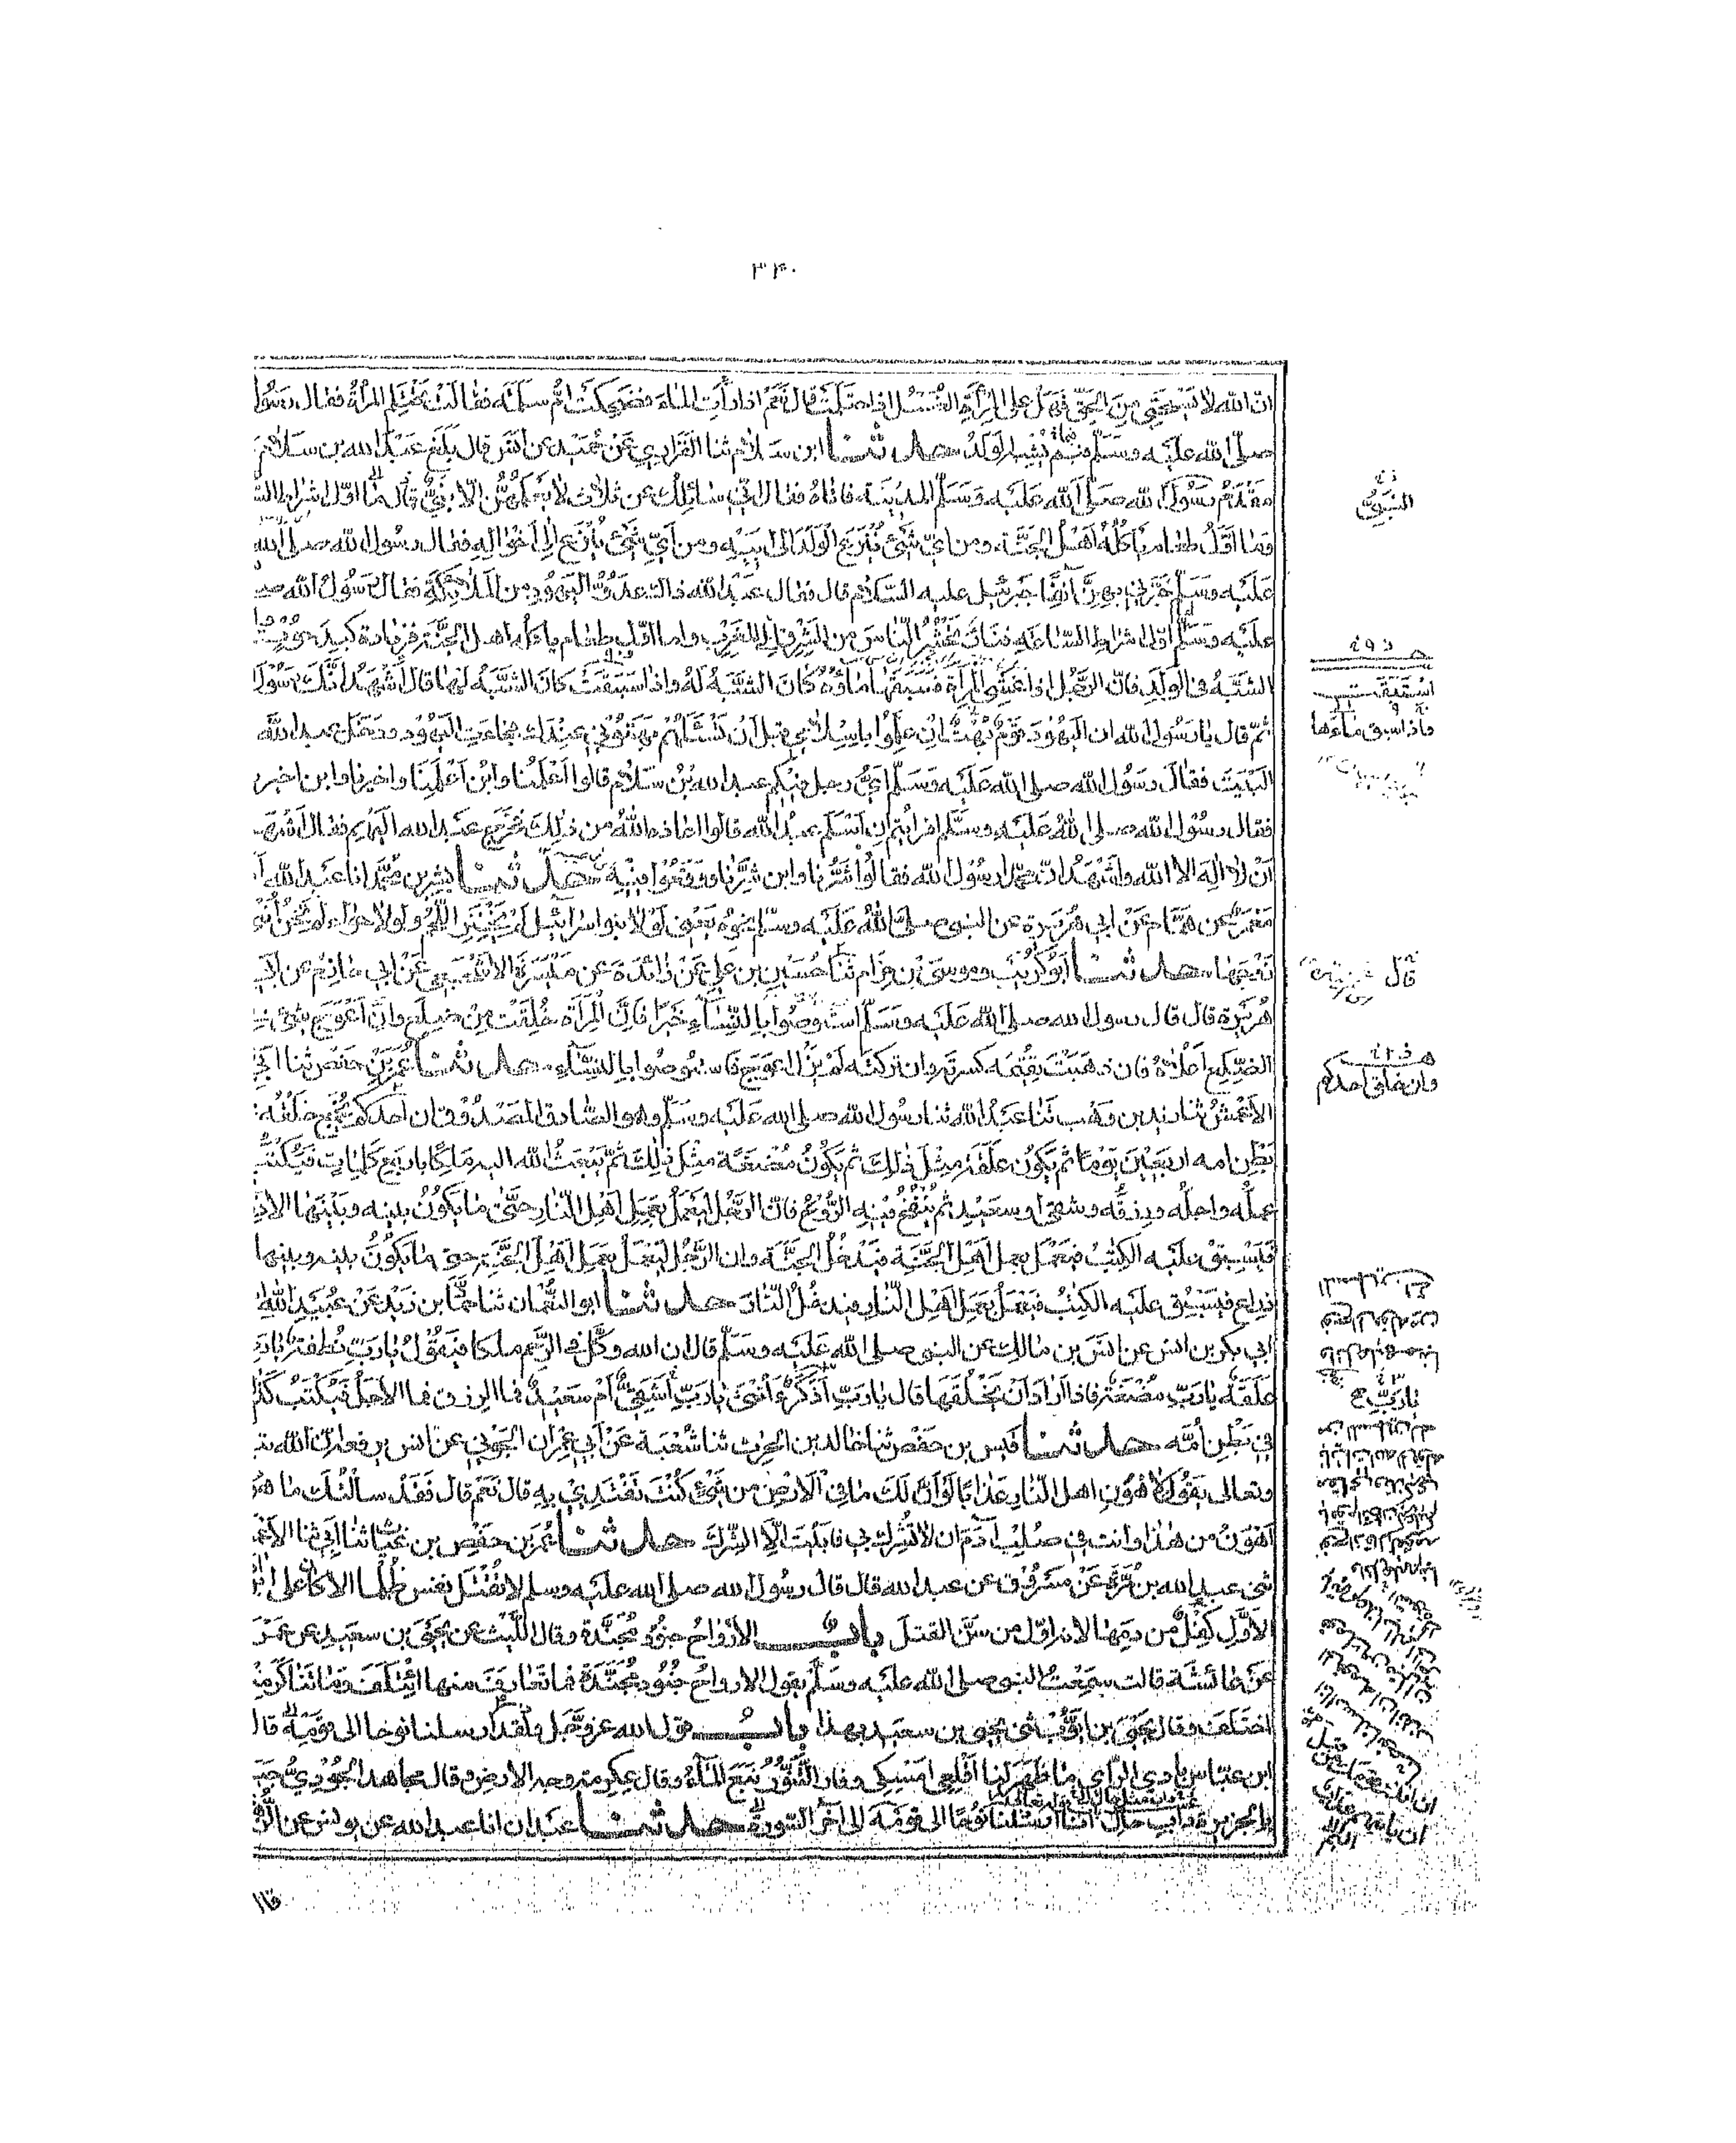 ٣٣٠
ان الله لا يستحيي من الحق فهل على المرأة الغسل اذا احتلمت قال نعم اذا رأت الماء فضحكت ام سلمة فقالت تحتلم المرأة فقال رسول
صلى الله عليه وسلم فبم يشبه الولد حدثنا ابن سلام ثنا الفزاري عن حميد عن انس قال بلغ عبد الله بن سلام
مقدم رسول الله صلى الله عليه وسلم المدينة فاتاه فقال اني سائلك عن ثلاث لا يعلمهن الا نبي قال ما اول اشراط
وما اول طعام ياكله اهل الجنة ومن اي شئ ينزع الولد الى ابيه ومن اي شئ ينزع الى اخواله فقال رسول الله صلى الله
عليه وسلم خبرني بهن انفا جبرئيل عليه السلام قال فقال عبد الله ذاك عدو اليهود من الملائكة فقال رسول الله
عليه وسلم اما اول اشراط الساعة فنار تحشر الناس من المشرق الى المغرب واما اول طعام ياكله اهل الجنة فزيادة كبد حوت واما
الشبه في الولد فان الرجل اذا غشي المرأة فسبقها ماؤه كان الشبه له واذا سبقت كان الشبه لها قال اشهد انك رسول
ثم قال يا رسول الله ان اليهود قوم بهت ان علموا باسلامي قبل ان تسألهم بهتوني عندك فجاءت اليهود ودخل عبد الله
البيت فقال رسول الله صلى الله عليه وسلم اي رجل فيكم عبد الله بن سلام قالوا اعلمنا وابن اعلمنا واخيرنا وابن اخير
فقال رسول الله صلى الله عليه وسلم افرايتم ان اسلم عبد الله قالوا اعاذه الله من ذلك فخرج عبد الله اليهم فقال اشهد
ان لا اله الا الله واشهد ان محمدا رسول الله فقالوا شرنا وابن شرنا ووقعوا فيه حدثنا بشر بن محمد انا عبد الله
معمر عن همام عن ابي هريرة عن النبي صلى الله عليه وسلم نحوه يعني لولا بنو اسرائيل لم يخنز اللحم ولولا حواء لم تخن انثى
زوجها حدثنا ابو كريب وموسى بن حزام ثنا حسين بن علي عن زائدة عن ميسرة الاشجعي عن ابي حازم عن ابي
هريرة قال قال رسول الله صلى الله عليه وسلم استوصوا بالنساء خيرا فان المرأة خلقت من ضلع وان اعوج شئ
الضلع اعلاه فان ذهبت تقيمه كسرته وان تركته لم يزل اعوج فاستوصوا بالنساء حدثنا عمر بن حفص ثنا ابي
الاعمش ثنا زيد بن وهب ثنا عبد الله ثنا رسول الله صلى الله عليه وسلم وهو الصادق المصدوق ان احدكم يجمع خلقه
بطن امه اربعين يوما ثم يكون علقة مثل ذلك ثم يكون مضغة مثل ذلك ثم يبعث الله اليه ملكا باربع كلمات فيكتب
عمله واجله ورزقه وشقي او سعيد ثم ينفخ فيه الروح فان الرجل ليعمل بعمل اهل النار حتى ما يكون بينه وبينها الا
فيسبق عليه الكتب فيعمل بعمل اهل الجنة فيدخل الجنة وان الرجل ليعمل بعمل اهل الجنة حتى ما يكون بينه وبينها
ذراع فيسبق عليه الكتب فيعمل بعمل اهل النار فيدخل النار حدثنا ابو النعمان ثنا حماد بن زيد عن عبيد الله
ابي بكر بن انس عن انس بن مالك عن النبي صلى الله عليه وسلم قال ان الله وكل في الرحم ملكا فيقول يا رب نطفة يا رب
علقة يا رب مضغة فاذا اراد ان يخلقها قال يا رب اذكر ام انثى يا رب اشقي ام سعيد فما الرزق فما الاجل فيكتب كذلك
في بطن امه حدثنا قيس بن حفص ثنا خالد بن الحرث ثنا شعبة عن ابي عمران الجوني عن انس يرفعه ان الله
وتعالى يقول لاهون اهل النار عذابا لو ان لك ما في الارض من شئ كنت تفتدي به قال نعم قال فقد سألتك ما هو
اهون من هذا وانت في صلب آدم ان لا تشرك بي فابيت الا الشرك حدثنا عمر بن حفص بن غياث ثنا ابي ثنا الاعمش
ثني عبد الله بن مرة عن مسروق عن عبد الله قال قال رسول الله صلى الله عليه وسلم لا تقتل نفس ظلما الا كان على ابن
الاول كفل من دمها لانه اول من سن القتل باب الارواح جنود مجندة وقال الليث عن يحيى بن سعيد عن عمرة
عن عائشة قالت سمعت النبي صلى الله عليه وسلم يقول الارواح جنود مجندة فما تعارف منها ائتلف وما تناكر منها
اختلف وقال يحيى بن ايوب ثني يحيى بن سعيد بهذا باب قول الله عز وجل ولقد ارسلنا نوحا الى قومه قال
ابن عباس بادي الرأي ما ظهر لنا اقلعي امسكي وفار التنور نبع الماء وقال عكرمة وجه الارض وقال مجاهد الجودي جبل
بالجزيرة دأب حال انا ارسلنا نوحا الى قومه الى آخر السورة حدثنا عبدان انا عبد الله عن يونس عن الزهري
النبي
استقبلت
ماذا سبق ماءها
قال
وان خلق احدكم
يا رب
قال